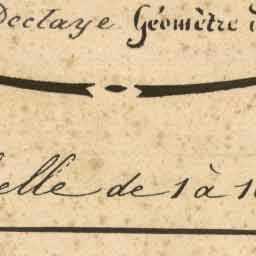 Declaye Géomètre
elle de 1 à 1